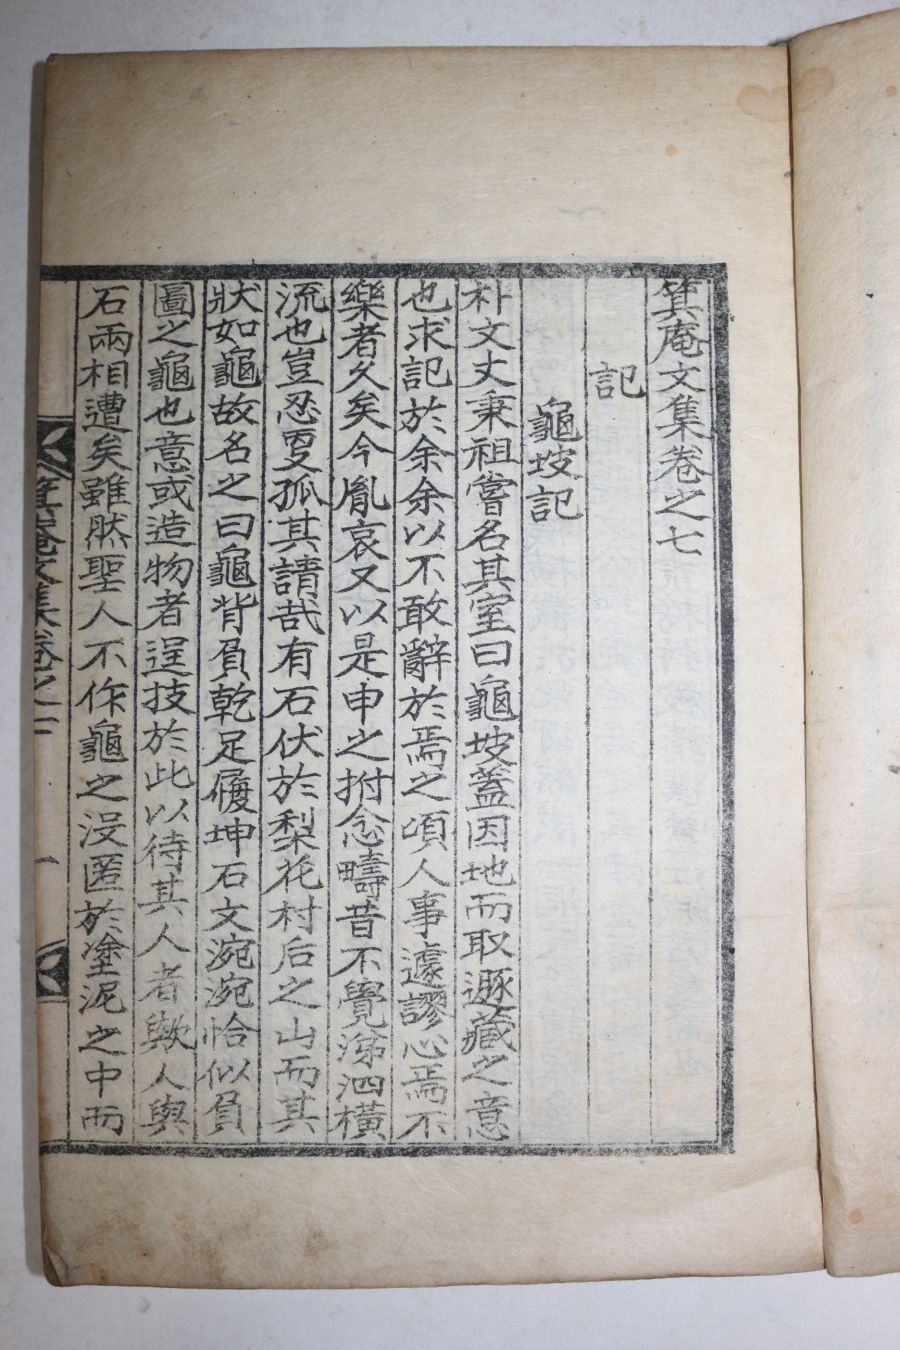 箕庵文集卷之七
記
龜坡記
朴文丈秉祖嘗名其室曰龜坡蓋因地而取遯藏之意
也求記於余余以不敢辭於焉之頃人事遽謬心焉不
樂者久矣今胤哀又以是申之拊念疇昔不覺涕泗橫
流也豈忍更孤其請哉有石伏於梨花村后之山而其
狀如龜故名之曰龜背負乾足履坤石文宛宛恰似負
圖之龜也意或造物者逞技於此以待其人者歟人與
石兩相遭矣雖然聖人不作龜之沒匿於塗泥之中而
箕庵文集卷之七
一